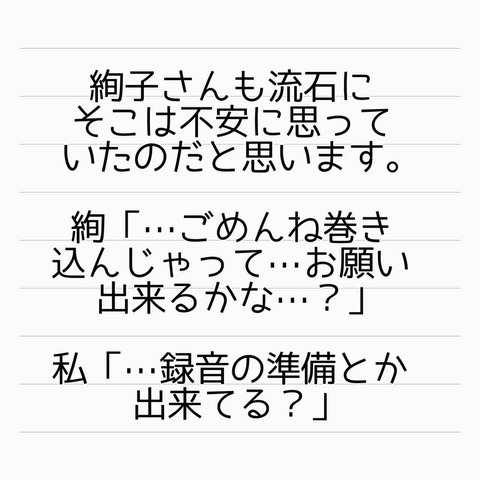 絢子さんも流石に
そこは不安に思って
いたのだと思います。
絢「…ごめんね巻き
込んじゃって…お願い
出来るかな…？」
私「…録音の準備とか
出来てる？」